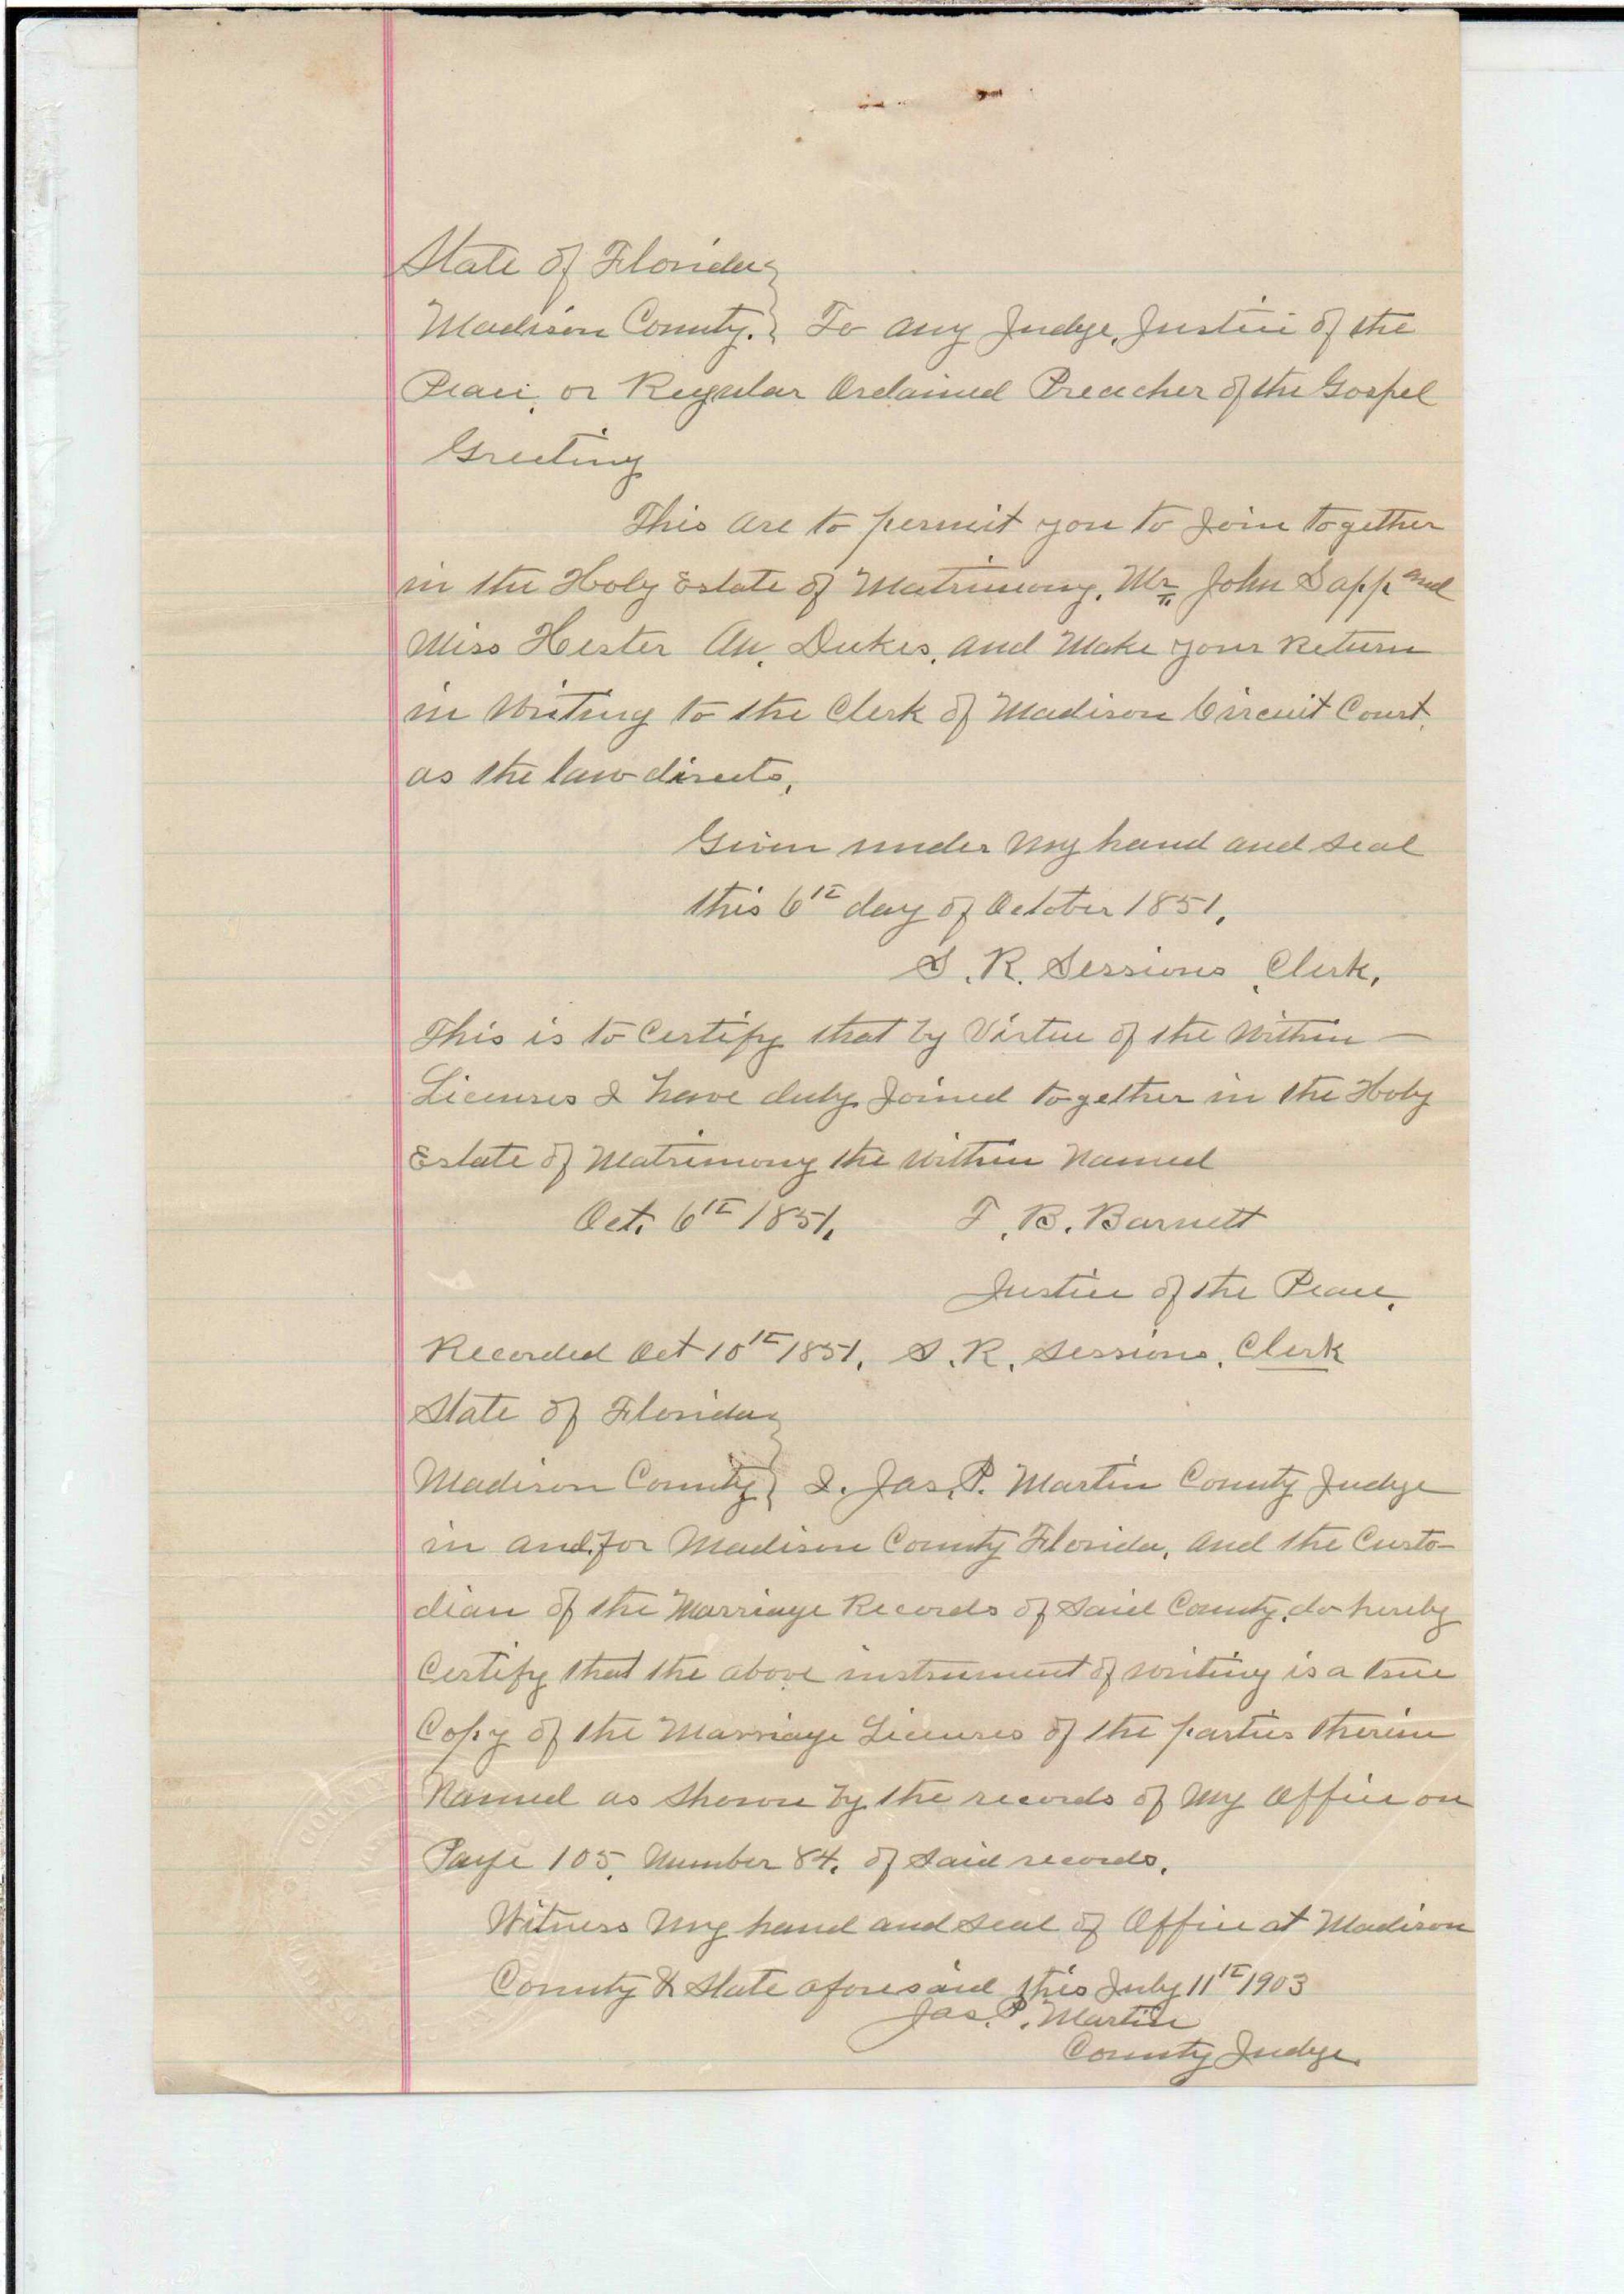 State of Florida }
Madison County. } To any Judge, Justice of the
Peace, or Regular Ordained Preacher of the Gospel
Greeting
This are to permit you to Join together
in the Holy Estate of Matrimony, Mr. John Sapp and
Miss Hester An, Dukes, and Make your Return
in Writing to the Clerk of Madison Circuit Court,
as the law directs,
Given under my hand and seal
this 6th day of October 1851,
S. R. Sessions, Clerk,
This is to Certify that by Virtue of the Within —
Licenses I have duly Joined together in the Holy
Estate of Matrimony the within Named
Oct. 6th 1851, T. B. Barnett
Justice of the Peace,
Recorded Oct 10th 1851, S. R. Sessions, Clerk
State of Florida }
Madison County } I, Jas. P. Martin County Judge
in and for Madison County Florida, and the Custo-
dian of the Marriage Records of Said County, do hereby
Certify that the above instrument of writing is a true
Copy of the Marriage Licenses of the parties therein
Named as shown by the records of my office on
Page 105, Number 84, of said records,
Witness my hand and seal of Office at Madison
County & State aforesaid this July 11th 1903
Jas. P. Martin
County Judge.